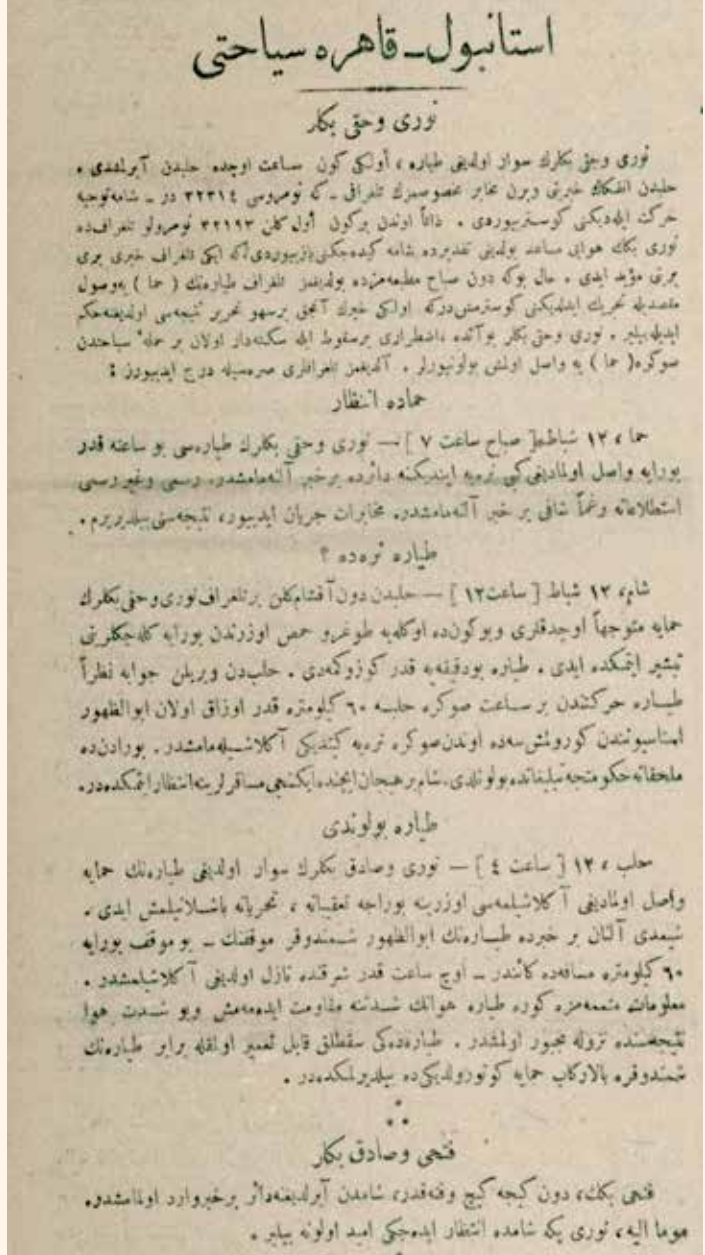 استانبول ـ قاهره سیاحتی
نوری وحقی بکلر
نوری وحقی بکلرك سوار اولدیغی طیاره ، أولکی کون ساعت اوچده حلبدن آیرلمشدی .
حلبدن انفکاك خبرینی ویرن مخابر مخصوصمزك تلغرافی ـ که نومروسی ٣٢٣١٤ در ـ شامه توجیه
حرکت ایلدیکنی کوستریوردی . ذاتاً اوندن برکون أول کلن ٣٢١٩٣ نومرولو تلغرافده
نوری بکك هوایی مساعد بولدیغی تقدیرده شامه کیده‌جکنی یازییوردی که ایکی تلغراف خبری بری
برینی مؤید ایدی . حال بوکه دون صباح مطبعه‌مزده بولدیغمز تلغراف طیاره‌نك ( حما ) یه وصول
مقصدیله تحریك ایدلدیکنی کوسترمش‌درکه اولکی خبرك آنجق برسهو تحریر نتیجه‌سی اولدیغنه حکم
ایدیله‌بیلیر . نوری وحقی بکلر بوآنده ، اضطراری برسقوط ایله سکته‌دار اولان بر حملهٔ سیاحتدن
صوکره ( حما ) یه واصل اولمش بولونیورلر . آلدیغمز تلغرافلری صره‌سیله درج ایدییورز :
حماده انتظار
حما ، ١٢ شباط [ صباح ساعت ٧ ] — نوری وحقی بکلرك طیاره‌سی بو ساعته قدر
بورایه واصل اولمادیغی کبی نره‌یه ایندیکنه دائرده برخبر آلنه‌مامشدر. رسمی وغیر رسمی
استطلاعاته رغماً شافی بر خبر آلنه‌مامشدر. مخابرات جریان ایدییور، نتیجه‌سنی بیلدیریرم .
طیاره نره‌ده ؟
شام، ١٢ شباط [ ساعت ١٢ ] — حلبدن دون آقشام کلن برتلغراف نوری وحقی بکلرك
حمایه متوجهاً اوچدقلری وبوکون‌ده اوکله‌یه طوغرو حمص اوزرندن بورایه کله‌جکلرینی
تبشیر ایتمکده ایدی . طیاره بودقیقه‌یه قدر کوزوکمه‌دی . حلب‌دن ویریلن جوابه نظراً
طیاره حرکتندن بر ساعت صوکره حلبه ٦٠ کیلومتره قدر اوزاق اولان ابوالظهور
استاسیوننندن کورولمش‌سه‌ده اوندن صوکره نره‌یه کیتدیکی آکلاشیله‌مامشدر . بورادن‌ده
ملحقاته حکومتجه تبلیغاتده بولونلدی. شام بر هیجان ایچنده ایکنجی مسافرلرینه انتظار ایتمکده‌در.
طیاره بولوندی
حلب ، ١٢ [ ساعت ٤ ] — نوری وصادق بکلرك سوار اولدیغی طیاره‌نك حمایه
واصل اولمادیغی آکلاشیلمه‌سی اوزرینه بوراجه تعقیباته ، تحریاته باشلانیلمش ایدی .
شیمدی آلنان بر خبرده طیاره‌نك ابوالظهور شمندوفر موقفنك ـ بو موقف بورایه
٦٠ کیلومتره مسافه‌ده کائندر ـ اوچ ساعت قدر شرقنده نازل اولدیغی آکلاشیلمشدر .
معلومات متممه‌مزه کوره طیاره هوانك شدتنه مقاومت ایده‌مه‌مش وبو شدت هوا
نتیجه‌سنده نزوله مجبور اولمشدر . طیاره‌ده‌کی سقطلق قابل تعمیر اولمقله برابر طیاره‌نك
شمندوفره بالارکاب حمایه کوتورولدیکی‌ده بیلدیرلمکده‌در .
فتحی وصادق بکلر
فتحی بکك، دون کیجه کیچ وقته‌قدر، شامدن آیرلدیغنه دائر برخبر وارد اولمامشدر.
موما الیه، نوری بکه شامده انتظار ایده‌جکی امید اولونه بیلیر .